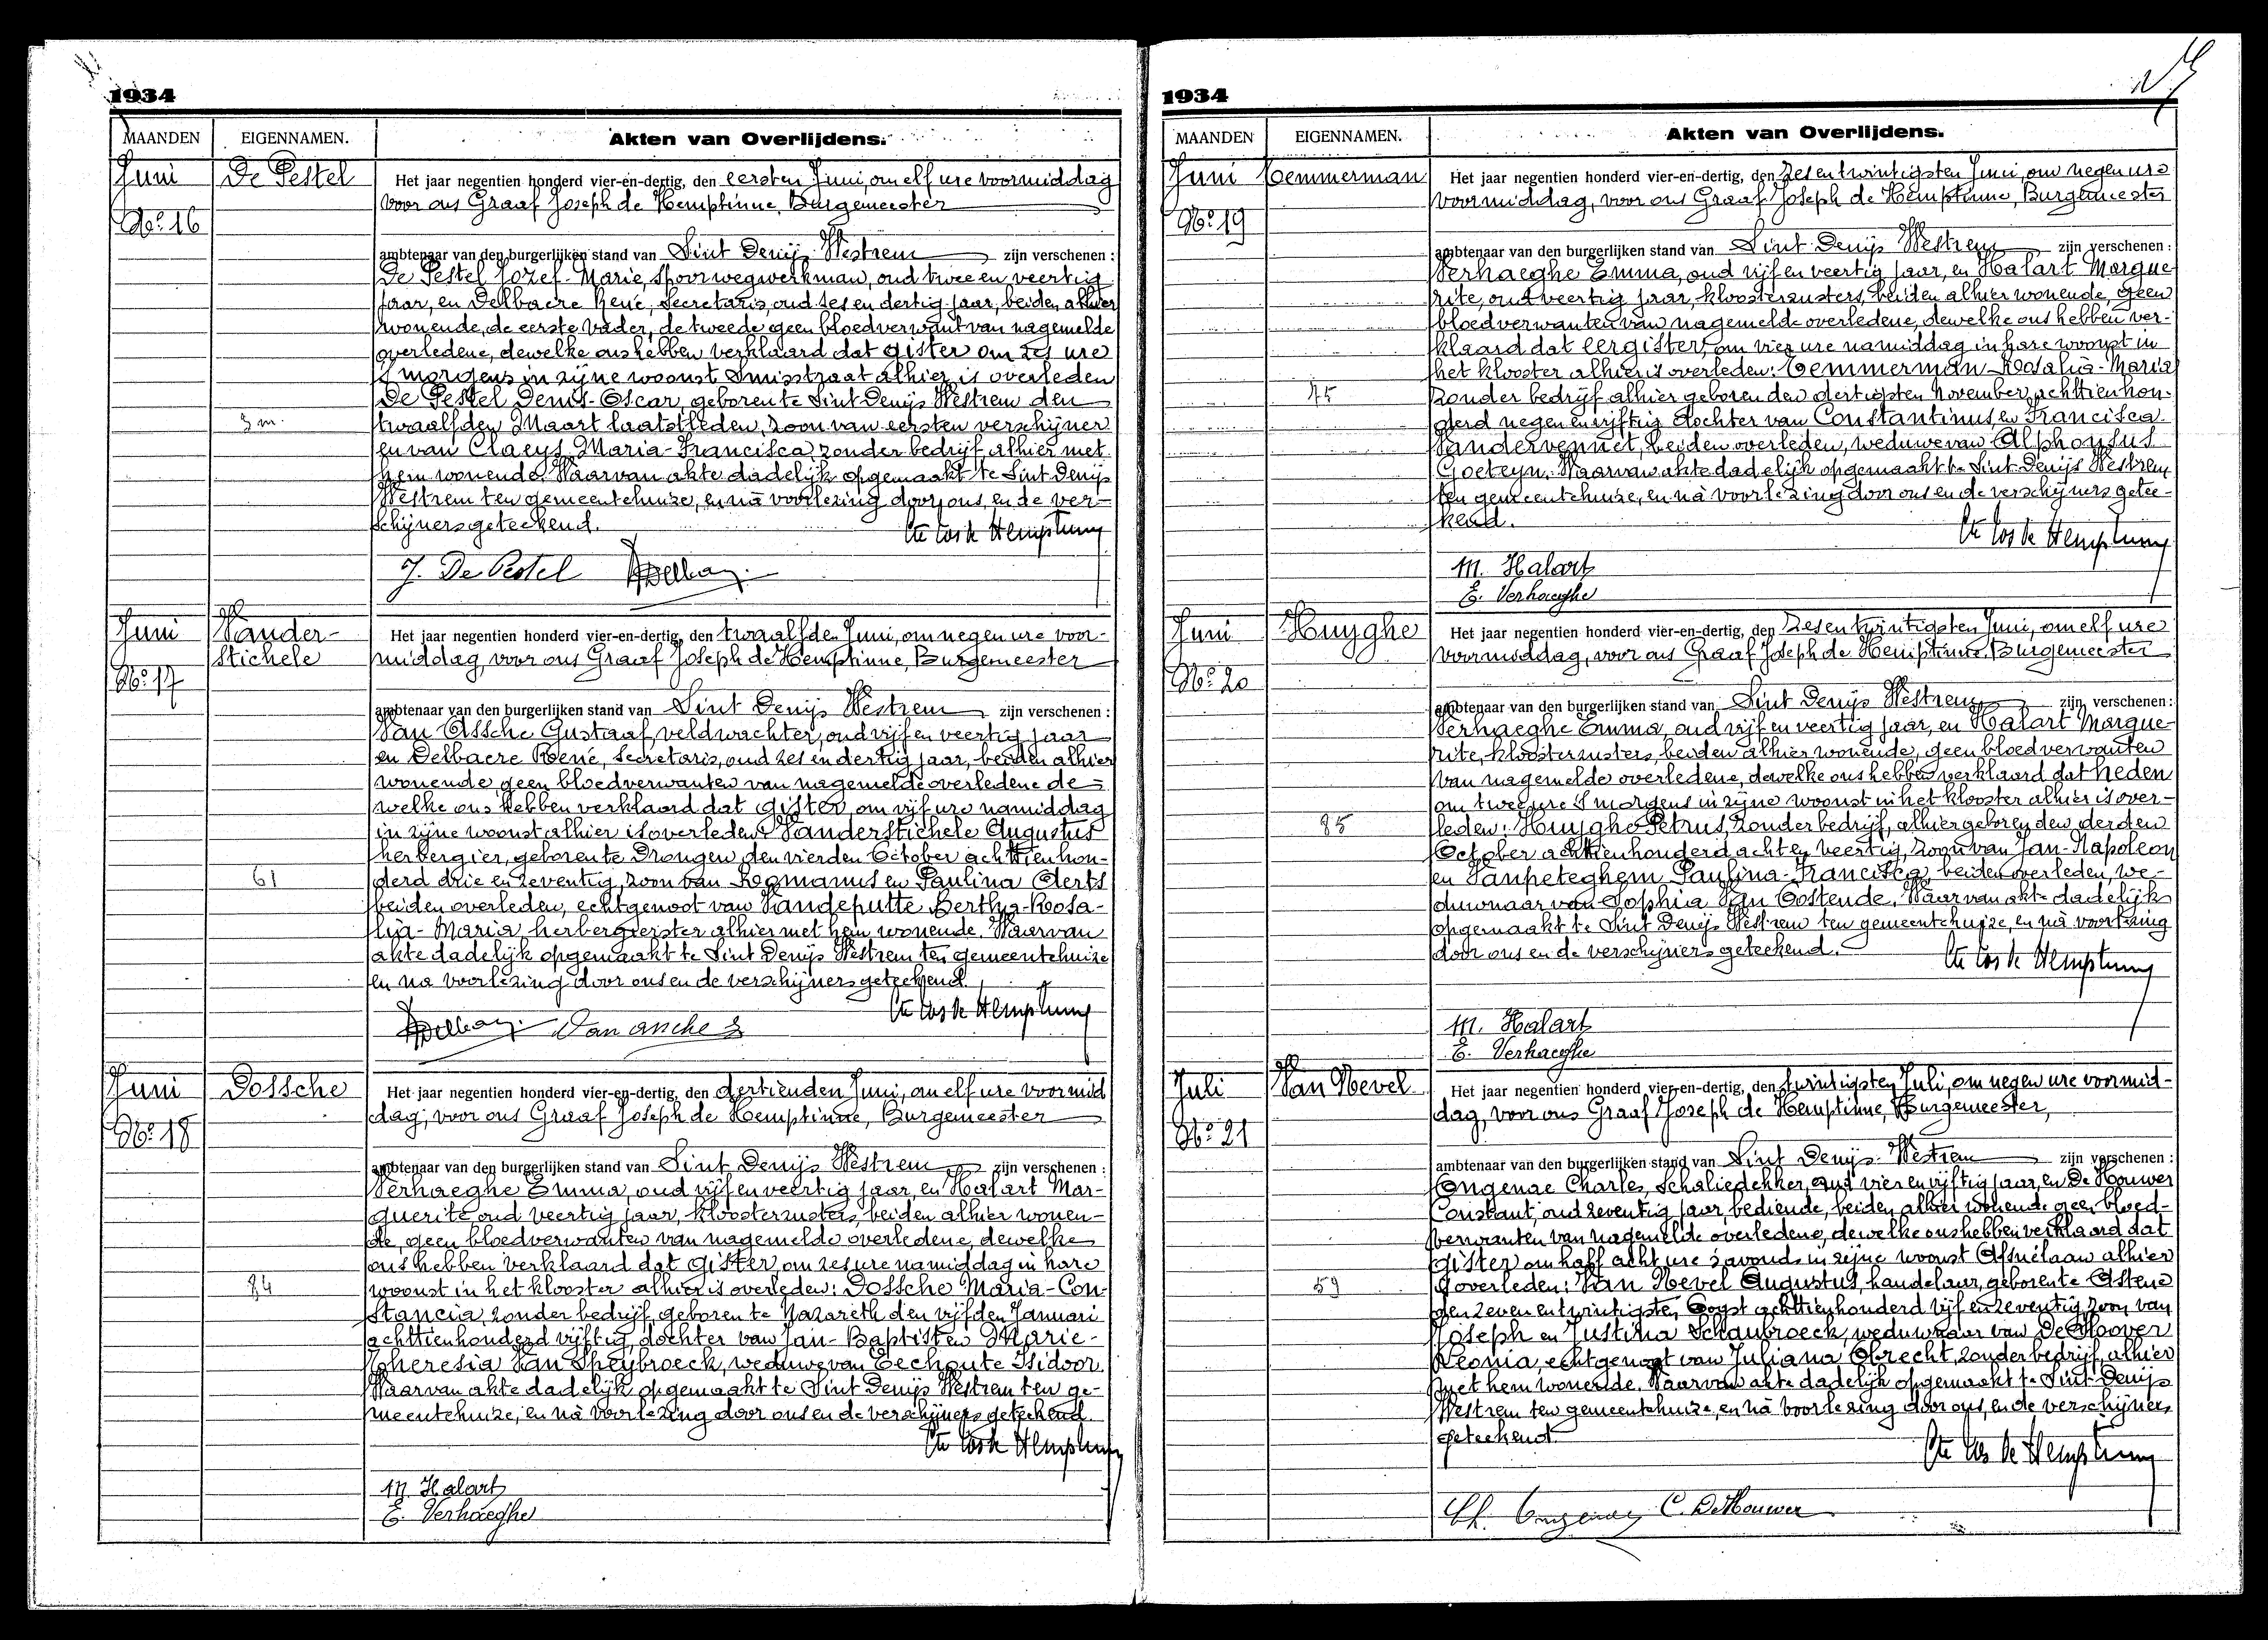 1934
MAANDEN EIGENNAMEN. Akten van Overlijdens.
Juni De Pestel Het jaar negentien honderd vier-en-dertig, den eersten Juni, om elf ure voormiddag
voor ons Graaf Joseph de Hemptinne, Burgemeester
No 16
ambtenaar van den burgerlijken stand van Sint Denijs Westrem zijn verschenen :
De Pestel Jozef-Marie, spoorwegwerkman, oud twee en veertig
jaar, en Delbaere René, secretaris, oud zes en dertig jaar, beiden alhier
wonende, de eerste vader, de tweede geen bloedverwant van nagemelde
overledene, dewelke ons hebben verklaard dat gister om zes ure
's morgens in zijne woonst Smisstraat alhier is overleden
De Pestel Denis-Oscar, geboren te Sint Denijs Westrem den
3 m. twaalfden Maart laatstleden, zoon van eersten verschijner
en van Claeys Maria-Francisca zonder bedrijf alhier met
hem wonende. Waarvan akte dadelijk opgemaakt te Sint Denijs
Westrem ten gemeentehuize, en nà voorlezing door ons, en de ver-
schijners geteekend.
Cte Jos de Hemptinne
J. De Pestel
Juni Vander- Het jaar negentien honderd vier-en-dertig, den twaalfden Juni, om negen ure voor-
stichele middag, voor ons Graaf Joseph de Hemptinne, Burgemeester
No 17
ambtenaar van den burgerlijken stand van Sint Denijs Westrem zijn verschenen :
Van Assche Gustaaf, veldwachter, oud vijf en veertig jaar
en Delbaere René, secretaris, oud zes en dertig jaar, beiden alhier
wonende geen bloedverwanten van nagemelde overledene de-
welke ons hebben verklaard dat gister om vijf ure namiddag
in zijne woonst alhier is overleden: Vanderstichele Augustus
herbergier, geboren te Drongen den vierden October achttienhon-
61 derd drie en zeventig, zoon van Romanus en Paulina Aerts
beiden overleden, echtgenoot van Vandeputte Bertha-Rosa-
lia-Maria, herbergierster alhier met hem wonende. Waarvan
akte dadelijk opgemaakt te Sint Denijs Westrem ten gemeentehuize
en na voorlezing door ons en de verschijners geteekend.
Cte Jos de Hemptinne
Juni Dossche Het jaar negentien honderd vier-en-dertig, den dertienden Juni, om elf ure voormid
dag, voor ons Graaf Joseph de Hemptinne, Burgemeester
No 18
ambtenaar van den burgerlijken stand van Sint Denijs Westrem zijn verschenen :
Verhaeghe Emma, oud vijf en veertig jaar, en Halart Mar-
guerite oud veertig jaar, kloosterzusters, beiden alhier wonen-
de, geen bloedverwanten van nagemelde overledene, dewelke
ons hebben verklaard dat gister, om zes ure namiddag in hare
84 woonst in het klooster alhier is overleden: Dossche Maria-Con-
stancia, zonder bedrijf, geboren te Nazareth den vijfden Januari
achttienhonderd vijftig, dochter van Jan-Baptist en Marie-
Theresia Van Speybroeck, weduwe van Eechoute Isidoor.
Waarvan akte dadelijk opgemaakt te Sint Denijs Westrem ten ge-
meentehuize, en nà voorlezing door ons en de verschijners geteekend.
Cte Jos de Hemptinne
M. Halart
E. Verhaeghe
1934
MAANDEN EIGENNAMEN. Akten van Overlijdens.
Juni Temmerman Het jaar negentien honderd vier-en-dertig, den zes en twintigsten Juni, om negen ure
voormiddag, voor ons Graaf Joseph de Hemptinne, Burgemeester
No 19
ambtenaar van den burgerlijken stand van Sint Denijs Westrem zijn verschenen :
Verhaeghe Emma, oud vijf en veertig jaar, en Halart Margue-
rite, oud veertig jaar, kloosterzusters, beiden alhier wonende, geen
bloedverwanten van nagemelde overledene, dewelke ons hebben ver-
klaard dat eergister, om vier ure namiddag in hare woonst in
het klooster alhier is overleden: Temmerman Rosalia-Maria
75 zonder bedrijf alhier geboren den dertigsten November achttienhon-
derd negen en vijftig dochter van Constantinus en Francisca
Vandervennet, beiden overleden, weduwe van Alphonsus
Goeteyn. Waarvan akte dadelijk opgemaakt te Sint Denijs Westrem
ten gemeentehuize, en nà voorlezing door ons en de verschijners getee-
kend.
Cte Jos de Hemptinne
M. Halart
E. Verhaeghe
Juni Huyghe Het jaar negentien honderd vier-en-dertig, den zes en twintigsten Juni, om elf ure
voormiddag, voor ons Graaf Joseph de Hemptinne Burgemeester
No 20
ambtenaar van den burgerlijken stand van Sint Denijs Westrem zijn verschenen :
Verhaeghe Emma, oud vijf en veertig jaar, en Halart Margue-
rite, kloosterzusters, beiden alhier wonende, geen bloedverwanten
van nagemelde overledene, dewelke ons hebben verklaard dat heden
om twee ure 's morgens in zijne woonst in het klooster alhier is over-
85 leden: Huyghe Petrus, zonder bedrijf, alhier geboren den derden
October achttienhonderd acht en veertig, zoon van Jan-Napoleon
en Vanpeteghem Paulina-Francisca, beiden overleden, we-
duwnaar van Sophia Van Oostende. Waarvan akte dadelijk
opgemaakt te Sint Denijs Westrem ten gemeentehuize, en nà voorlezing
door ons en de verschijners geteekend.
Cte Jos de Hemptinne
M. Halart
E. Verhaeghe
Juli Van Hevel Het jaar negentien honderd vier-en-dertig, den twintigsten Juli, om negen ure voormid-
dag, voor ons Graaf Joseph de Hemptinne, Burgemeester,
No 21
ambtenaar van den burgerlijken stand van Sint Denijs Westrem zijn verschenen :
Ongenae Charles, schaliedekker, oud vier en vijftig jaar, en De Houwer
Constant, oud zeventig jaar, bediende, beiden alhier wonende geen bloed-
verwanten van nagemelde overledene, dewelke ons hebben verklaard dat
gister om half acht ure 's avonds in zijne woonst Afsnélaan alhier
59 is overleden: Van Hevel Augustus, handelaar, geboren te Astene
den zeven en twintigsten Oogst achttienhonderd vijf en zeventig, zoon van
Joseph en Justina Schaubroeck, weduwnaar van De Hoover
Leonia, echtgenoot van Juliana Obrecht, zonder bedrijf, alhier
met hem wonende. Waarvan akte dadelijk opgemaakt te Sint Denijs
Westrem ten gemeentehuize, en nà voorlezing door ons, en de verschijners
geteekend
Cte Jos de Hemptinne
Ch. Ongenae C. De Houwer